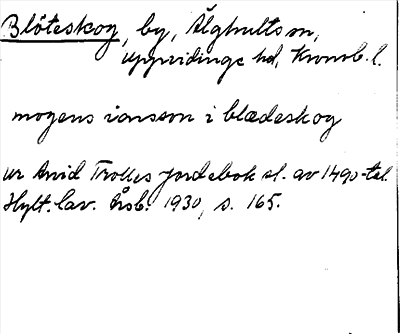 Blöteskog, by, Älghults sn,
Uppvidinge hd, Kronob. l.
mogens ionsson i blædeskog
ur Arvid Trolles jordebok sl. av 1490-tal.
Hylt. Cav. Årsb. 1930, s. 165.